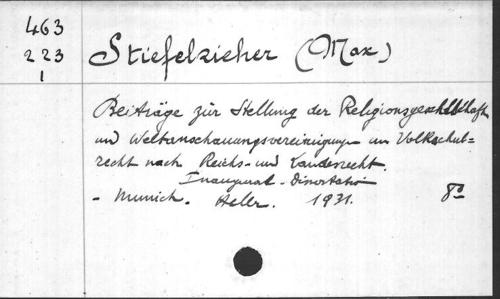 463
223
1
Stiefelzieher (Max)
Beiträge zur Stellung der Religionsgesellschaften
und Weltanschauungsvereinigungen im Volksschul=
recht nach Reichs- und Landesrecht.
Inaugural-Dissertation
- Munich. Heller. 1931. 8°